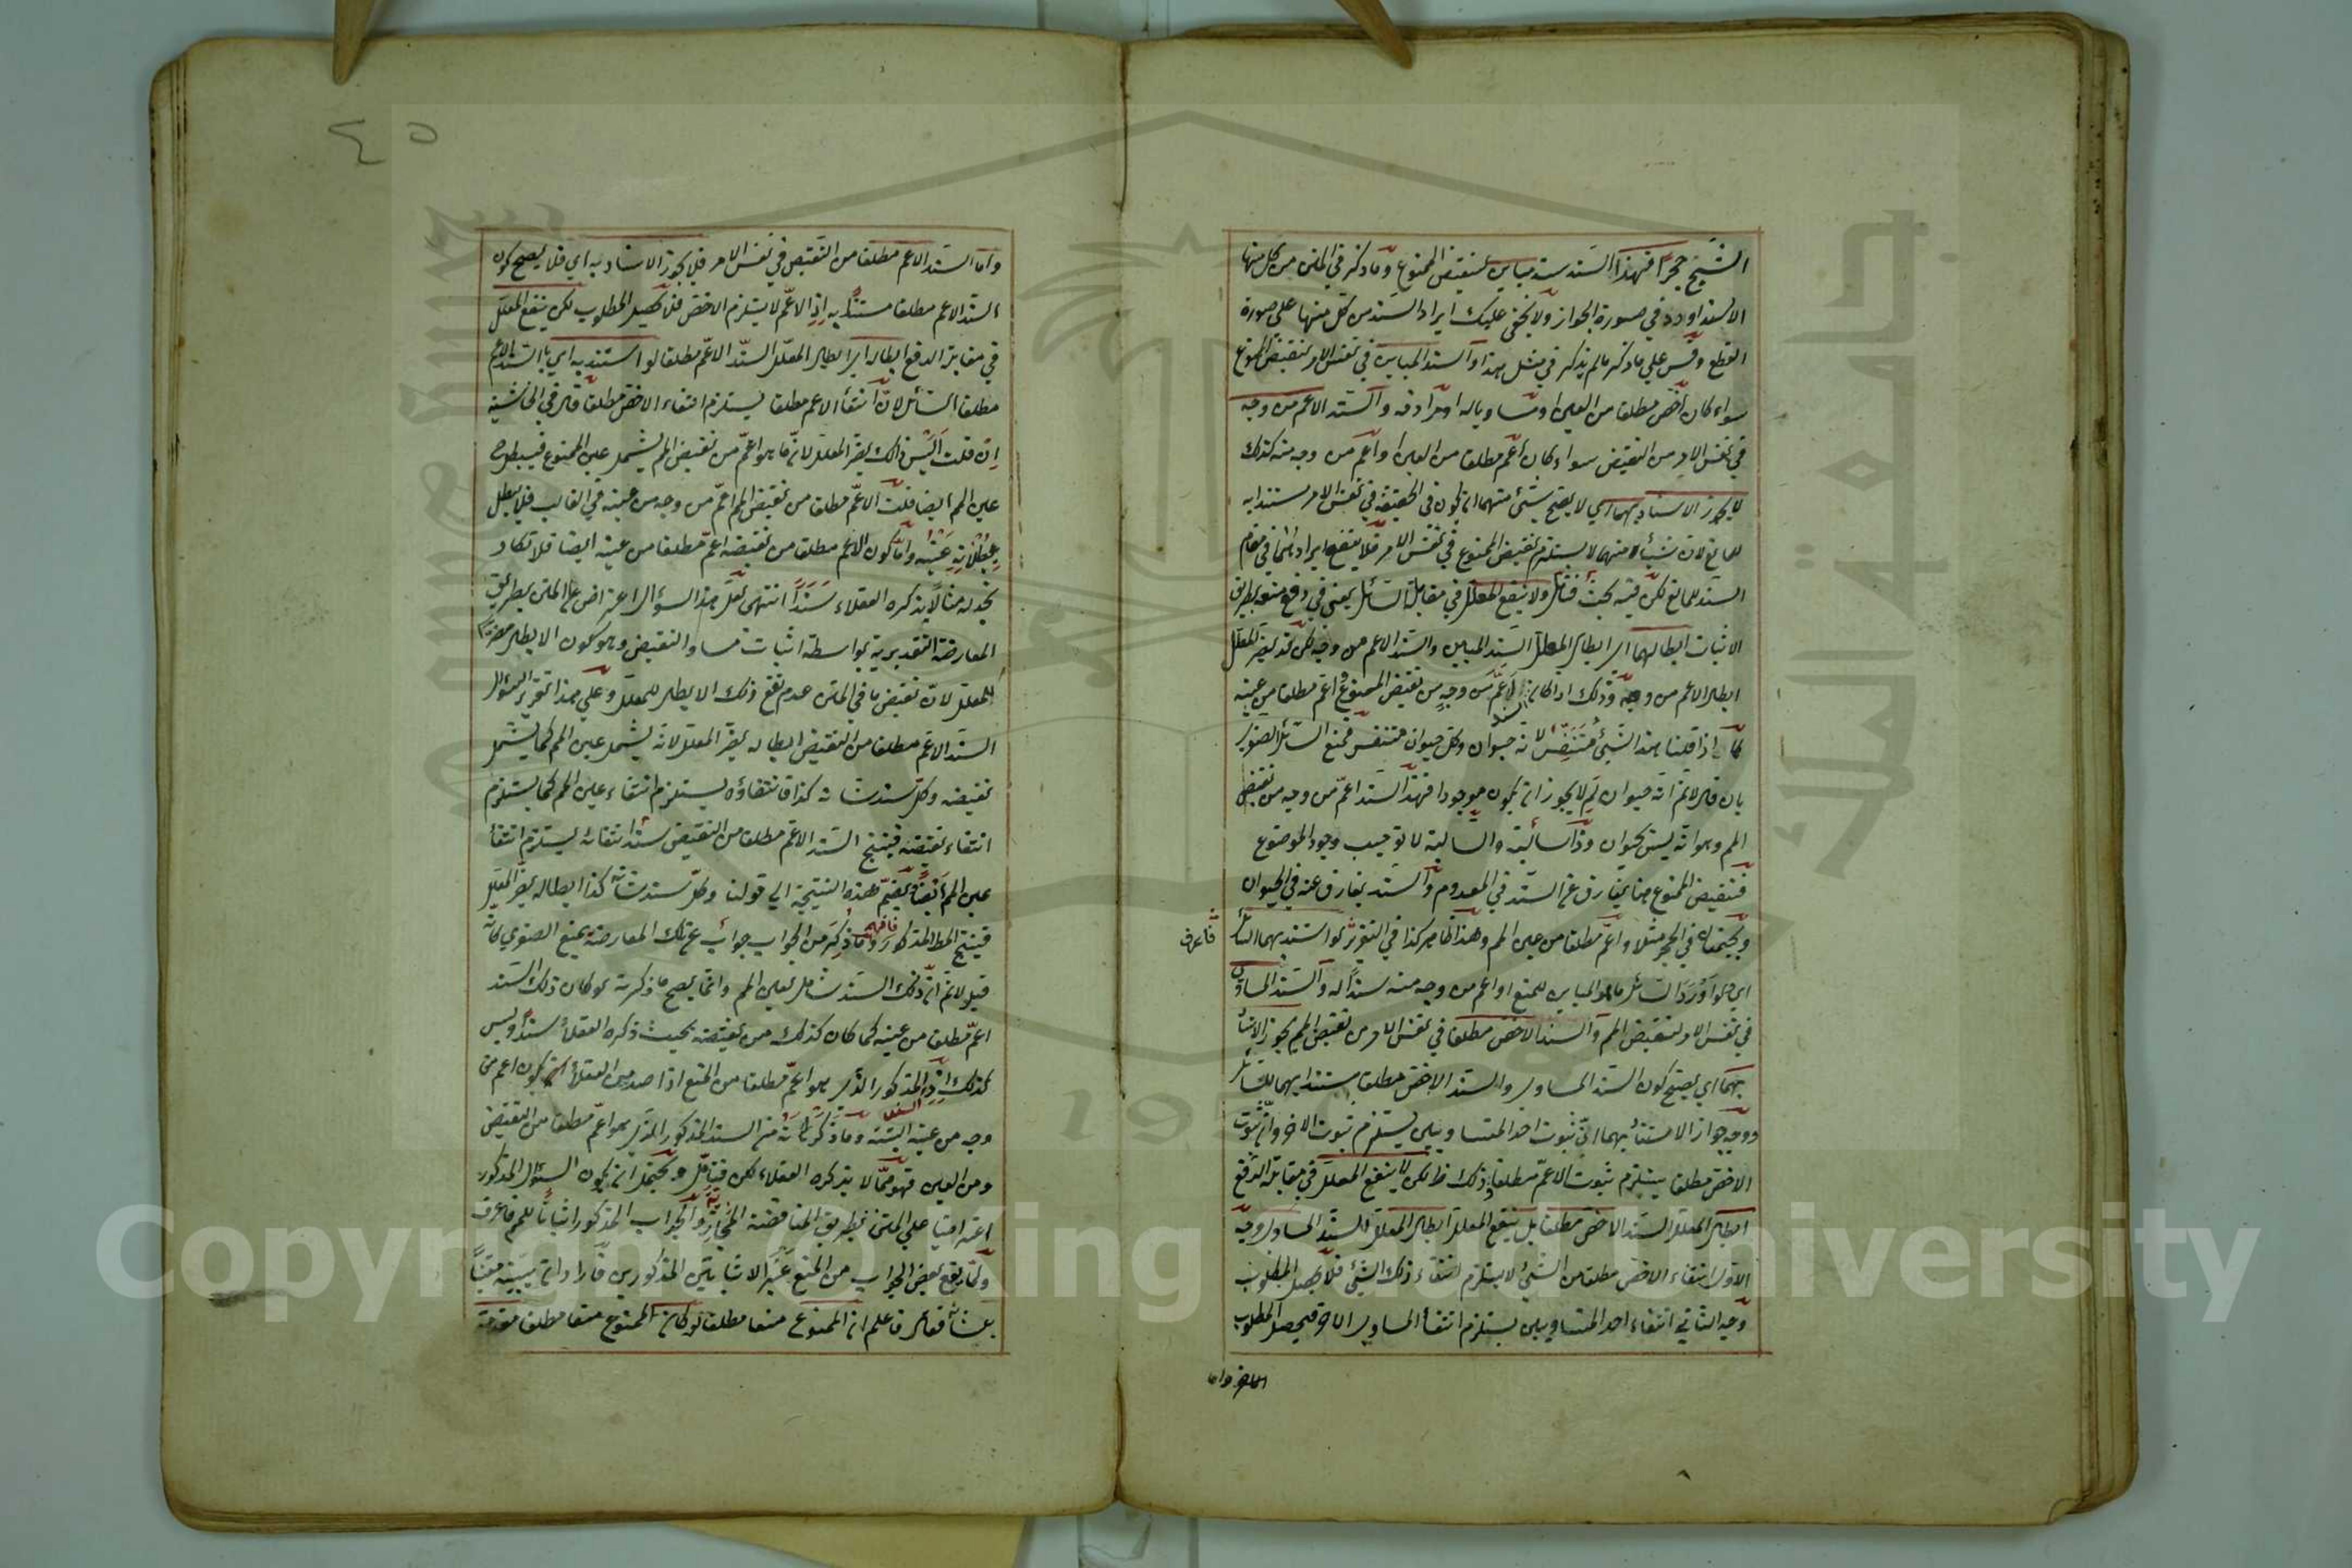 الشبح حجرا فهذا السند سند مباين لنقيض الممنوع وما ذكر في المتن من كل منها
الاسند اورد في صورة الجواز ولا يخفى عليك ايراد السند من كل منها على صورة
القطع وقس على ما ذكر ما لم يذكر في مثل هذا والسند المباين في نفس الامر لنقيض الممنوع
سواء كان اخص مطلقا من العين او مساويا له او مرادفه والسند الاعم من وجه
في نفس الامر من النقيض سواء كان اعم مطلقا من العين او اعم من وجه منه كذلك
لا يجوز الاستناد بهما اي لا يصح شيء منهما ان يكون في الحقيقة في نفس الامر مستندا به
للمانع لان شيئا منهما لا يستلزم نقيض الممنوع في نفس الامر فلا ينفع ايرادهما في مقام
السند للمانع لكن فيه بحث فتأمل ولا ينفع المعلل في مقابلة السائل يعني في دفع منعه بطريق
الاثبات ابطالهما اي ابطال المعلل السند المباين والسند الاعم من وجه لكن قد يضر المعلل
ابطال الاعم من وجه وذلك اذا كان السند اعم من وجه من نقيض الممنوع اعم مطلقا من عينه
كما اذا قلنا هذا الشيء متنفس لانه حيوان وكل حيوان متنفس فمنع السائل الصغرى
بان قال لانم انه حيوان لم لا يجوز ان يكون موجودا فهذا السند اعم من وجه من نقيض
المم وهو انه ليس بحيوان وذا سالبة والسالبة لا توجب وجود الموضوع
فنقيض الممنوع هنا يفارق عن السند في المعدوم والسند يفارق عنه في الحيوان
ويجتمعان في الحجر مثلا واعم مطلقا من عين المم وهذا ظاهر كذا في التقرير لو استند بهما السائل
فاعرف
اي لو اورد السائل ما هو المباين للمنع او اعم من وجه منه سندا له والسند المساوي
في نفس الامر لنقيض المم والسند الاخص مطلقا في نفس الامر من نقيض المم يجوز الاستناد
بهما اي يصح كون السند المساوي والسند الاخص مطلقا مستندا بهما للسائل
ووجه جواز الاستناد بهما ان ثبوت احد المتساويين يستلزم ثبوت الاخر وان ثبوت
الاخص مطلقا يستلزم ثبوت الاعم مطلقا وذلك ظ لكن لا ينفع المعلل في مقابلة الدفع
ابطال المعلل السند الاخص مطلقا بل ينفع المعلل ابطال المعلل للسند المساوي وجه
الاول انتفاء الاخص مطلقا من الشيء لا يستلزم انتفاء ذلك الشيء فلا يحصل المطلوب
وجه الثاني انتفاء احد المتساويين يستلزم انتفاء المساوي الاخر فيحصل المطلوب
واما
٤٥
واما السند الاعم مطلقا من النقيض في نفس الامر فلا يجوز الاستناد به اي فلا يصح كون
السند الاعم مطلقا مستندا به اذ الاعم لا يستلزم الاخص فلا يحصل المطلوب لكن ينفع المعلل
في مقابلة الدفع ابطاله اي ابطال المعلل السند الاعم مطلقا لو استند به اي بالسند الاعم
مطلقا السائل لان انتفاء الاعم مطلقا يستلزم انتفاء الاخص مطلقا قال في الحاشية
ان قلت اليس ذلك يضر المعلل لانه ما هو اعم من نقيض المم يشمل عين الممنوع فيبطل
عين المم ايضا قلت الاعم مطلقا من نقيض المم اعم من وجه من عينه في الغالب فلا يبطل
ببطلانه عينه واما كون الاعم مطلقا من نقيضه اعم مطلقا من عينه ايضا فلا تكاد
تجد له مثالا يذكره العقلاء سندا انتهى لعل هذا السؤال اعتراض على المتن بطريق
المعارضة التقديرية بواسطة اثبات مساو النقيض وهو كون الابطال مضرا
للمعلل لان نقيض ما في المتن عدم نفع ذلك الابطال للمعلل وعلى هذا تقرير السؤال
السند الاعم مطلقا من النقيض ابطاله يضر المعلل لانه يشمل عين المم كما يشمل
نقيضه وكل سند شانه كذا فانتفاؤه يستلزم انتفاء عين المم كما يستلزم
انتفاء نقيضه فينتج السند الاعم مطلقا من النقيض سند انتفائه يستلزم انتفاء
عين المم ايضا ويضم هذه النتيجة الى قولنا وكل سند شانه كذا ابطاله يضر المعلل
فينتج المطلوب المذكور فافهم وما ذكر من الجواب جواب عن تلك المعارضة بمنع الصغرى كانه
قيل لانم ان ذلك السند شامل لعين المم وانما يصح ما ذكرته لو كان ذلك السند
اعم مطلقا من عينه كما كان كذلك من نقيضه بحيث ذكره العقلاء سندا وليس
كذلك اذ المذكور الذي هو اعم مطلقا من المنع اذا صدر من العقلاء يكون اعم من
وجه من عينه البتة وما ذكرته من السند المذكور الذي هو اعم مطلقا من النقيض
ومن العين فهو مما لا يذكره العقلاء لكن فتأمل ويحتمل ان يكون السؤال المذكور
اعتراضا على المتن بطريق المناقضة المجازية والجواب المذكور اثباتا للمم فاعرف
ولما يقع بعض الجواب من المنع غير الاثباتين المذكورين فاراد ان يبينه معينا
بشانه فقال فاعلم ان الممنوع منعا مطلقا لو كان الممنوع منعا مطلقا مقدمة
Copyright © King Saud University